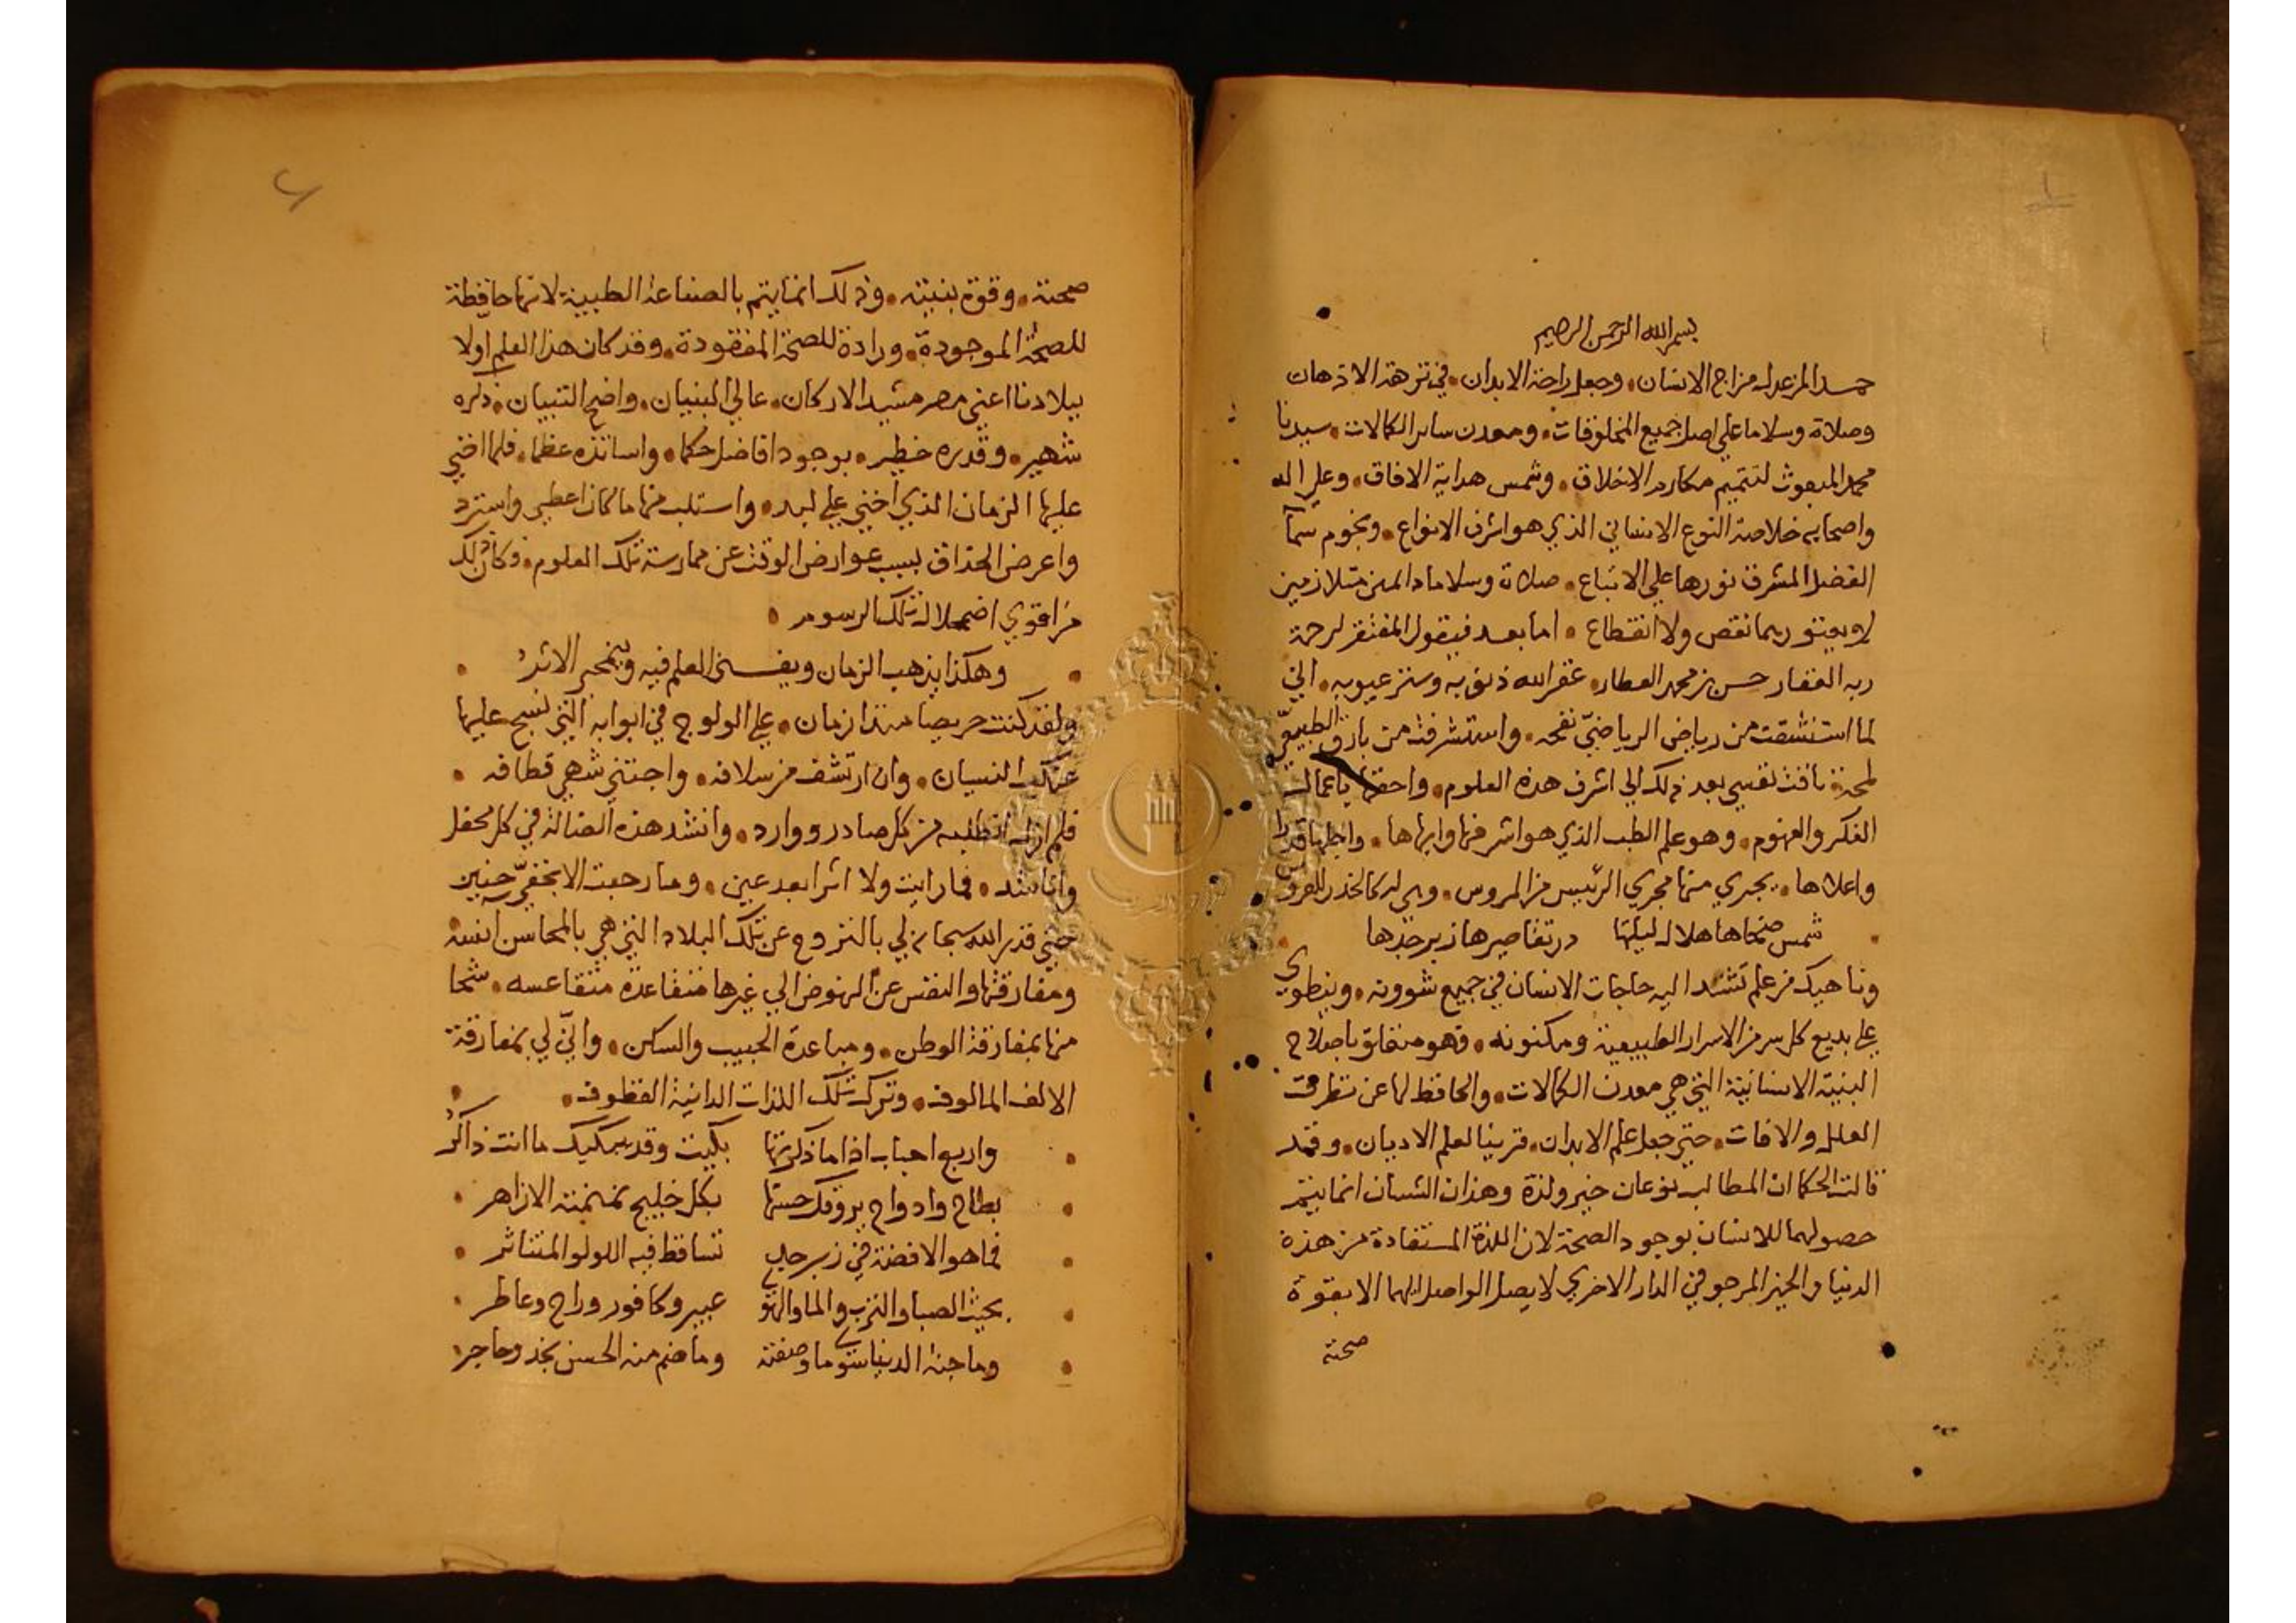 ١
بسم الله الرحمن الرحيم
حمدا لمن عدل مزاج الانسان، وجعل راحة الابدان، في نزهة الاذهان
وصلاة وسلاما علي اصل جميع المخلوقات، ومعدن ساير الكمالات، سيدنا
محمد المبعوث لتتميم مكارم الاخلاق، وشمس هداية الافاق، وعلي اله
واصحابه خلاصة النوع الانساني الذي هو اشرف الانواع، ونجوم سمآ
الفضل المشرق نورها علي الاتباع، صلاة وسلاما دائمين متلازمين
لا يعتوريهما نقص ولا انقطاع، اما بعد فيقول المفتقر لرحمة
ربه الغفار حسن بن محمد العطار، غفر الله ذنوبه وستر عيوبه، اني
لما استنشقت من رياض الرياضيّ نفحه، واستشرقت من بارق الطبيعيّ
لمحة تاقت نفسي بعد ذلك الي اشرف هذه العلوم، واحقها باعمال
الفكر والفهوم، وهو علم الطب الذي هو اشرفها وابهاها، واجلها قدرا
واعلاها، يجري منها مجري الرئيس من المروس، وهي له كالخدر للعروس
شمس ضحاها هلال ليلتها در تقاصيرها زبرجدها
وناهيك من علم تشتد اليه حاجات الانسان في جميع شوونه، وينطوي
علي بديع كل سر من الاسرار الطبيعية ومكنونه، فهو متعلق باصلاح
البنية الانسانية التي هي معدن الكمالات، والحافظ لها عن تطرق
العلل والافات، حتي جعل علم الابدان، قرينا لعلم الاديان، وقد
قالت الحكما ان المطالب نوعان خير ولذة وهذان الشيان انما يتم
حصولهما للانسان بوجود الصحة لان اللذة المستفادة من هذه
الدنيا والخير المرجو في الدار الاخري لا يصل الواصل اليهما الا بقوة
صحته
٢
صحته، وقوة بنيته، وذلك انما يتم بالصناعة الطبية لانها حافظة
للصحة الموجودة، ورادة للصحة المفقودة، وقد كان هذا العلم اولا
ببلادنا اعني مصر مشيد الاركان، عالي البنيان، واضح التبيان، ذكره
شهير، وقدره خطير، بوجود افاضل حكما، واساتذه عظما، فلما اخني
عليها الزمان الذي اخني علي لبد، واستلب منها ما كان اعطي واسترد
واعرض الحذاق بسبب عوارض الوقت عن ممارسة تلك العلوم، وكان ذلك
من اقوي اضمحلال تلك الرسوم
وهكذا يذهب الزمان ويفـــني العلم فيه وينمحي الاثر
ولقد كنت حريصا منذ ازمان، علي الولوج في ابوابه التي نسج عليها
عنكب النسيان، وان ارتشف من سلافه، واجتني شهي قطافه
فلم ازل اتطلبه من كل صادر ووارد، وانشد هذه الضالة في كل محفل
واناشد، فما رايت ولا اثرا بعد عين، وما رجعت الا بخفيّ حنين
حتي قدر الله سبحانه لي بالنزوح عن تلك البلاد التي هي بالمحاسن انسه
ومفارقتها والنفس عن النهوض الي غيرها متقاعدة متقاعسه، شحا
منها بمفارقة الوطن، ومباعدة الحبيب والسكن، وانّي لي بمفارقة
الالف المالوف، وترك تلك اللذات الدانية القطوف،
واربع احباب اذا ما ذكرتها بكيت وقد يبكيك ما انت ذاكر
بطاح وادواح يروقك حسنها بكل خليج نمنمته الازاهر
فما هو الا فضة في زبرجد تساقط فيه اللولو المتناثر
بحيث الصبا والترب والما والهوي عبير وكافور وراح وعاطر
وما جنة الدنيا سوي ما وصفته وما ضم منه الحسن نجد وحاجر